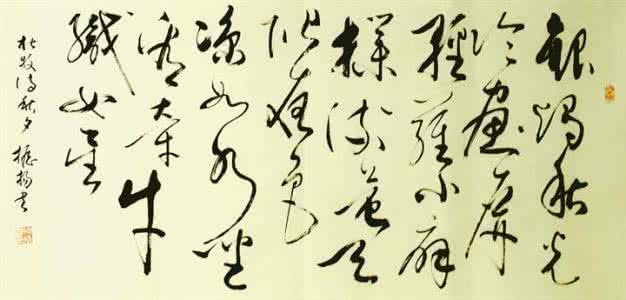 銀燭秋光
冷畫屏
輕羅小扇
撲流螢天
階夜色
涼如水坐
看牽牛
織女星
杜牧詩秋夕